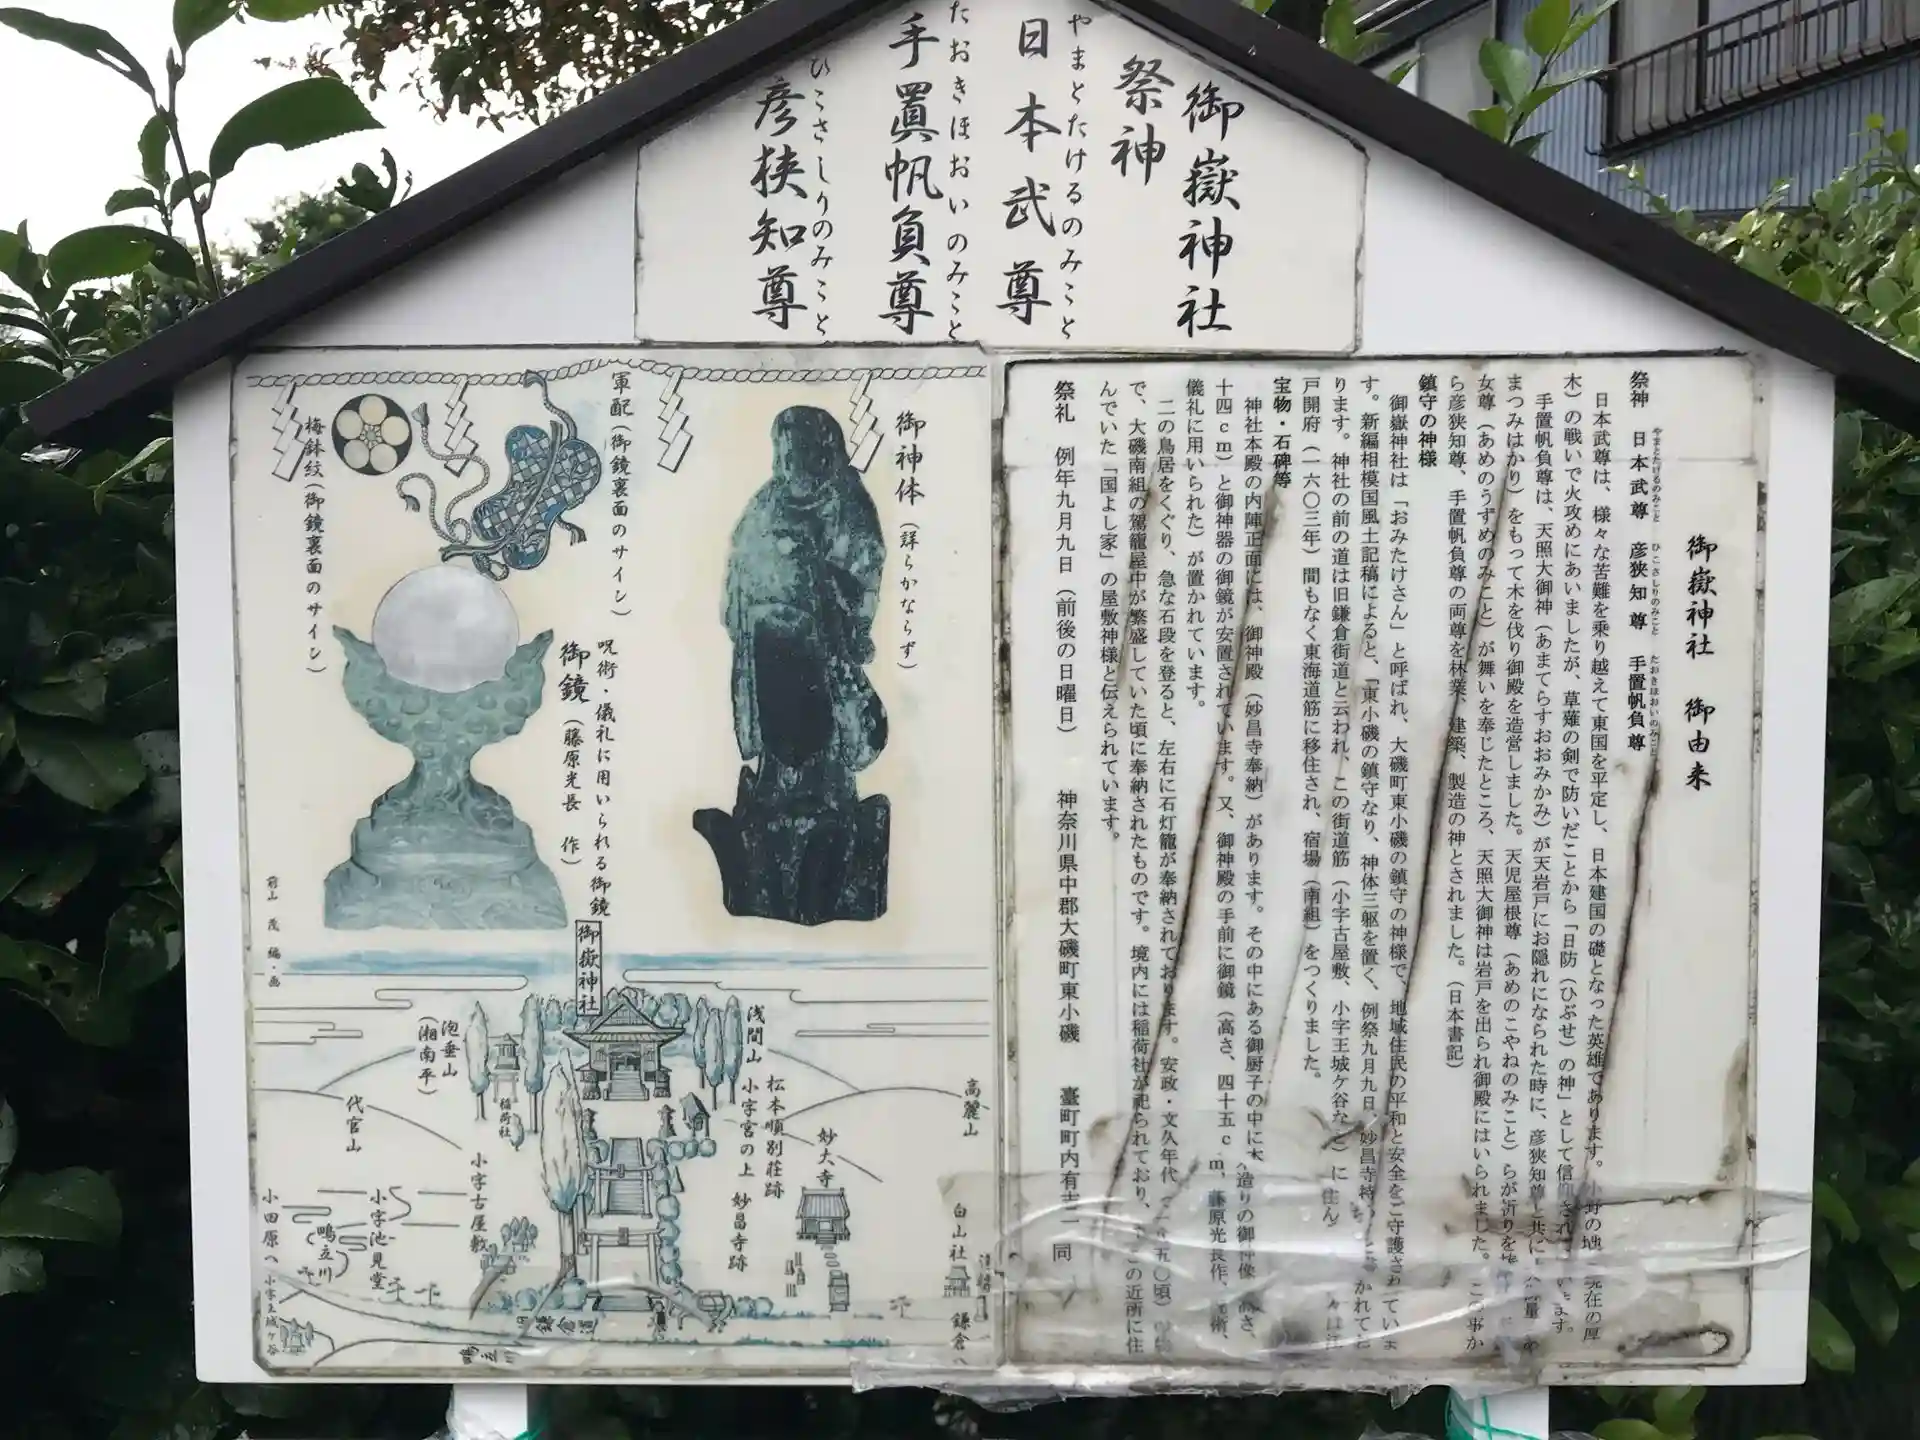 御嶽神社
祭神
やまとたけるのみこと
日本武尊
たおきほおいのみこと
手置帆負尊
ひこさしりのみこと
彦狭知尊
御嶽神社 御由来
祭神 日本武尊 彦狭知尊 手置帆負尊
やまとたけるのみこと ひこさしりのみこと たおきほおいのみこと
日本武尊は、様々な苦難を乗り越えて東国を平定し、日本建国の礎となった英雄であります。小野の地 現在の厚
木)の戦いで火攻めにあいましたが、草薙の剣で防いだことから「日防(ひぶせ)の神」として信仰されています。
手置帆負尊は、天照大御神(あまてらすおおみかみ)が天岩戸にお隠れになられた時に、彦狭知尊と共に 量 の
まつみはかり)をもって木を伐り御殿を造営しました。天児屋根尊(あめのこやねのみこと)らが祈りを
女尊(あめのうずめのみこと)が舞いを奉じたところ、天照大御神は岩戸を出られ御殿にはいられました。この事か
ら彦狭知尊、手置帆負尊の両尊を林業、建築、製造の神とされました。(日本書記)
鎮守の神様
御嶽神社は「おみたけさん」と呼ばれ、大磯町東小磯の鎮守の神様で、地域住民の平和と安全をご守護されていま
す。新編相模国風土記稿によると、「東小磯の鎮守なり、神体三躯を置く、例祭九月九日、妙昌寺持 かれてお
ります。神社の前の道は旧鎌倉街道と云われ、この街道筋(小字古屋敷、小字王城ケ谷など)に住ん は江
戸開府(一六〇三年)間もなく東海道筋に移住され、宿場(南組)をつくりました。
宝物・石碑等
神社本殿の内陣正面には、御神殿(妙昌寺奉納)があります。その中にある御厨子の中に木造りの御神像 高さ、
十四cm)と御神器の御鏡が安置されています。又、御神殿の手前に御鏡(高さ、四十五cm、藤原光長作、呪術、
儀礼に用いられた)が置かれています。
二の鳥居をくぐり、急な石段を登ると、左右に石灯籠が奉納されております。安政・文久年代 五〇頃)
で、大磯南組の駕籠屋中が繁盛していた頃に奉納されたものです。境内には稲荷社が祀られており、この近所に住
んでいた「国よし家」の屋敷神様と伝えられています。
祭礼 例年九月九日(前後の日曜日) 神奈川県中郡大磯町東小磯 臺町町内有志一同
御神体(詳らかならず)
軍配(御鏡裏面のサイン)
梅鉢紋(御鏡裏面のサイン)
呪術・儀礼に用いられる御鏡
御鏡(藤原光長 作)
前山 茂 編・画
御嶽神社
浅間山
泡垂山
(湘南平)
稲荷社
代官山
高麗山
松本順別荘跡
小字宮の上
妙昌寺跡
妙大寺
小字古屋敷
小字池見堂
鴫立川
小田原へ
小字王城ケ谷
白山社
鎌倉へ
旧鎌倉道
鴫立川